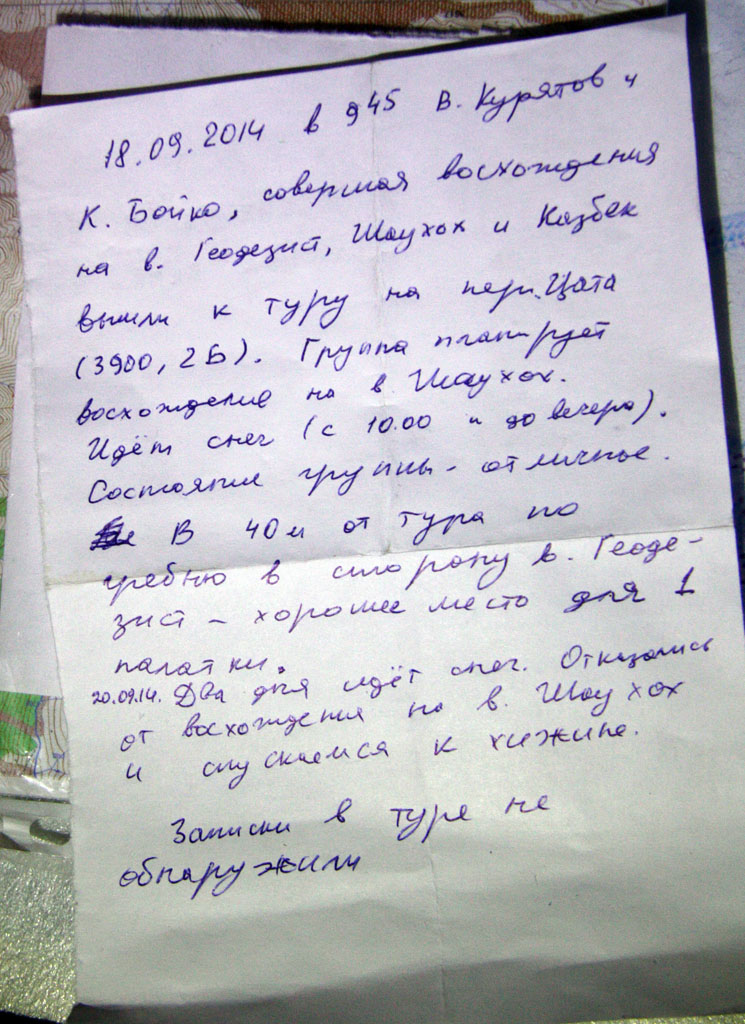 18.09.2014 в 9 45 В. Курятов и
К. Бойко, совершая восхождения
на в. Геодезист, Шаухох и Казбек
вышли к туру на пер. Цата
(3900, 2Б). Группа планирует
восхождение на в. Шаухох.
Идёт снег (с 10.00 и до вечера).
Состояние группы - отличное.
В 40м от тура по
гребню в сторону в. Геоде-
зист - хорошее место для 1
палатки.
20.09.14. Два дня идёт снег. Отказались
от восхождения на в. Шаухох
и спускаемся к хижине.
Записки в туре не
обнаружили